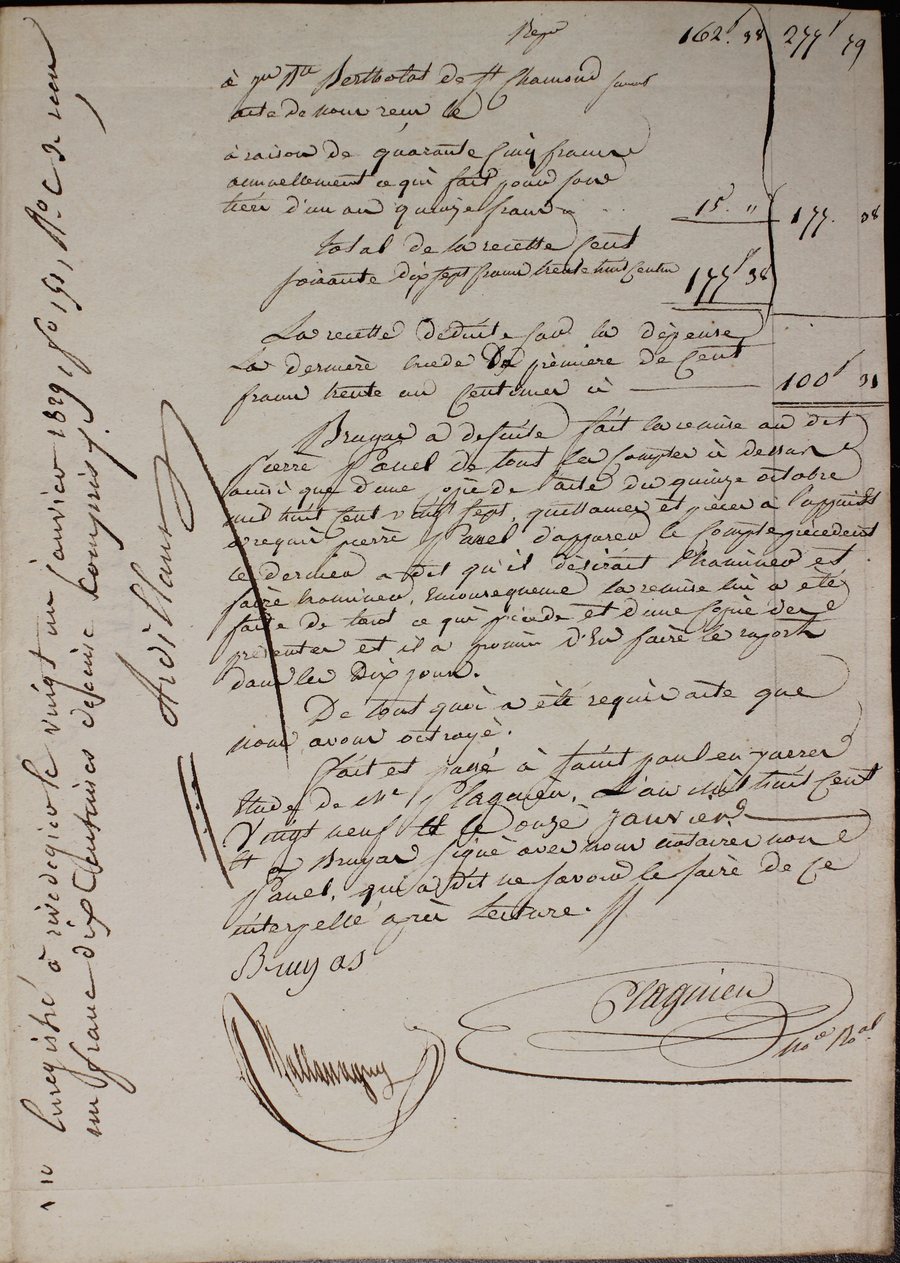 Repr 162f. 38 277f 79
à Berthollat de St Chamond suivant
acte de nous reçu le
à raison de quarante cinq francs
annuellement ce qui fait pour son
tiers d'un an quinze francs 15f. " 177. 38
total de la recette cent
soixante dix sept francs trente huit centim 177f 38
La recette déduite sur la dépense
La dernière excede la première de Cent
francs trente un Centimes ci 100f 31
Bruyas a desuite fait la remise au dit
pierre Panel de tous les comptes ci dessus
ainsi que d'une copie de l'acte du quinze octobre
mil huit cent vingt sept, quittances et pièces à l'appui et
a requis pierre Panel d'apurer le Compte précédent
ce dernier a dit qu'il désirait l'éxaminer et
faire éxaminer, en conséquence la remise lui a été
faite de tout ce qui précède et d'une copie des
présentes et il a promis d'En faire le raport
dans les Dix jours.
De tout quoi a été requis acte que
nous avons octroyé.
fait et passé à saint paul en jarrez
étude de Me Plagnieu, L'an mil huit cent
vingt neuf et le onze janvier
et a Bruyas signé avec nous notaires non
Panel, qui a dit ne savoir le faire de ce
interpellé après Lecture.
Bruyas
Plagnieu
nore Ral
Vallemagny
Enregistré à rivedegier le vingt un janvier 1829, fo 191, Ro C. 3e reçu
un franc dix Centimes décime compris.
Ardillane